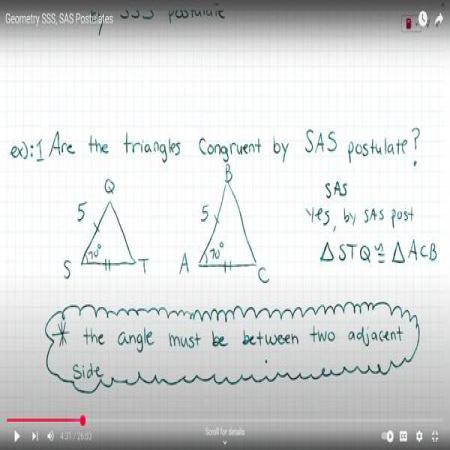 by SSS postulate
Geometry SSS, SAS Postulates
ex):1 Are the triangles Congruent by SAS postulate?
Q
B
SAS
5
5
Yes, by SAS post
70°
70°
△STQ ≅ △ACB
S
T
A
C
* the angle must be between two adjacent
side
4:31 / 26:03
Scroll for details